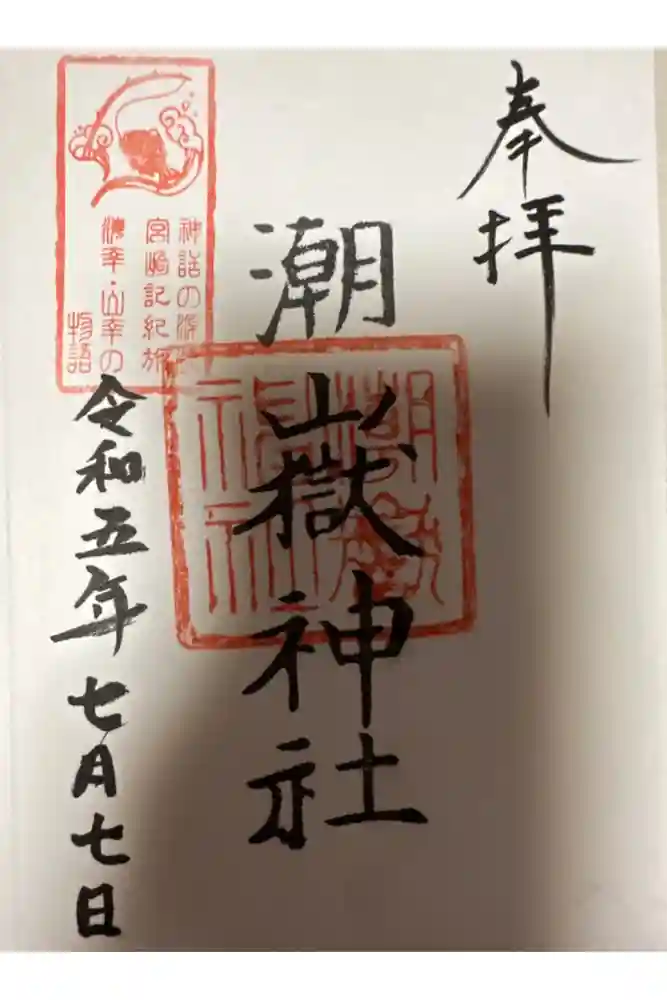 奉拝
潮嶽神社
神話の源流
宮崎記紀旅
海幸・山幸の
物語
令和五年七月七日